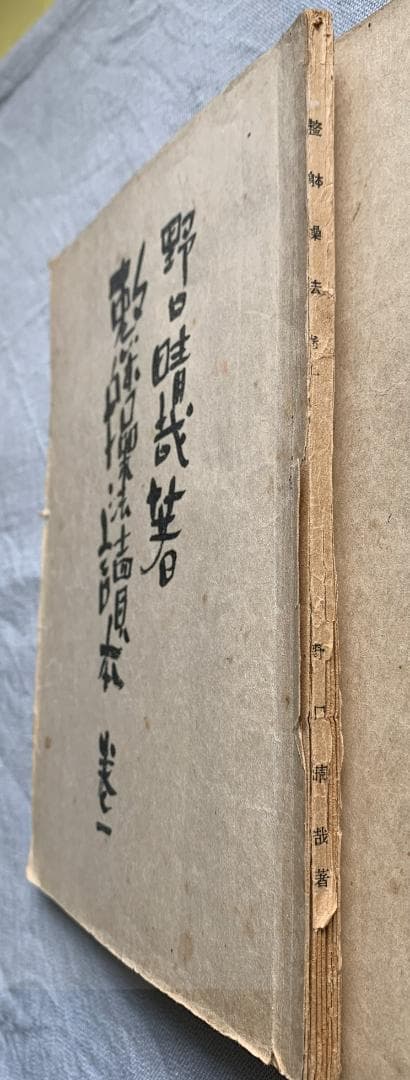 野口晴哉著
整体操法讀本 巻一
整体操法 巻一 野口晴哉著